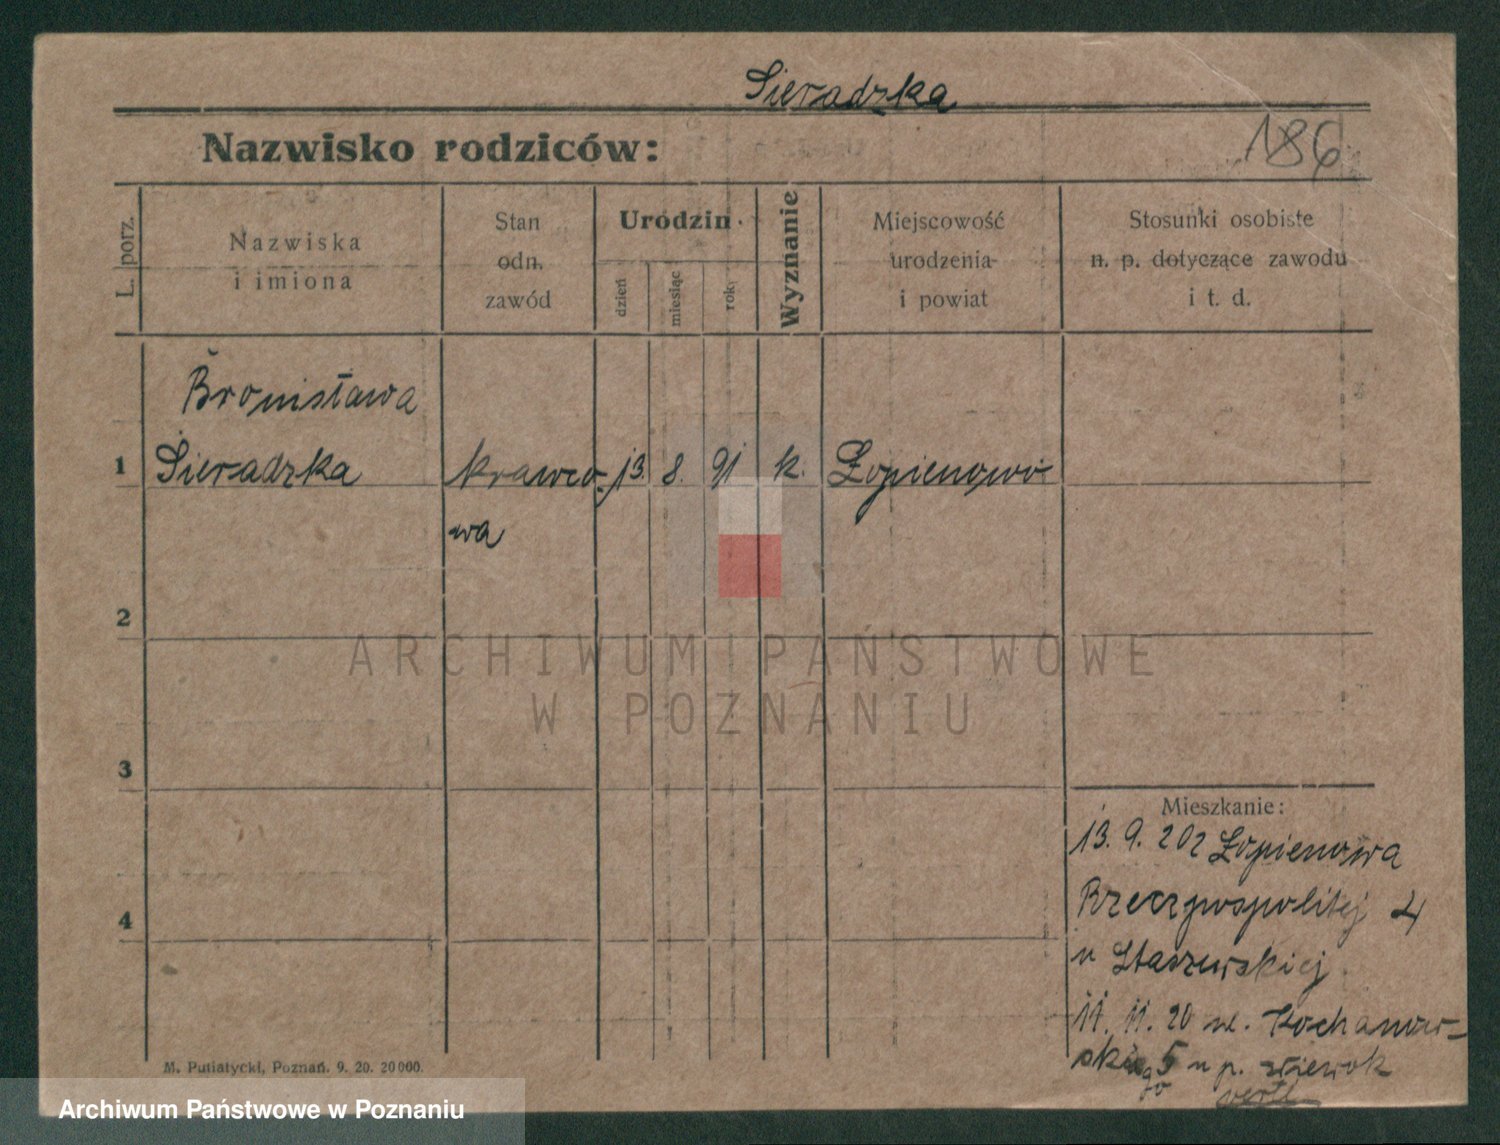 Sieradzka
Nazwisko rodziców:
186
L. porz.
Nazwiska
i imiona
Stan
odn.
zawód
Urodzin
dzień
miesiąc
rok
Wyznanie
Miejscowość
urodzenia
i powiat
Stosunki osobiste
n. p. dotyczące zawodu
i t. d.
Bronisława
1 Sieradzka krawco- 13. 8. 91 k. Łopienowo
wa
2
ARCHIWUM PAŃSTWOWE
W POZNANIU
3
Mieszkanie:
13. 9. 202 Łopienowa
4
Rzeczpospolitej 4
u Staszewskiej
11. 11. 20 ul. Kochanow-
skiego 5 u p.
M. Putiatycki, Poznań. 9. 20. 20000.
Archiwum Państwowe w Poznaniu